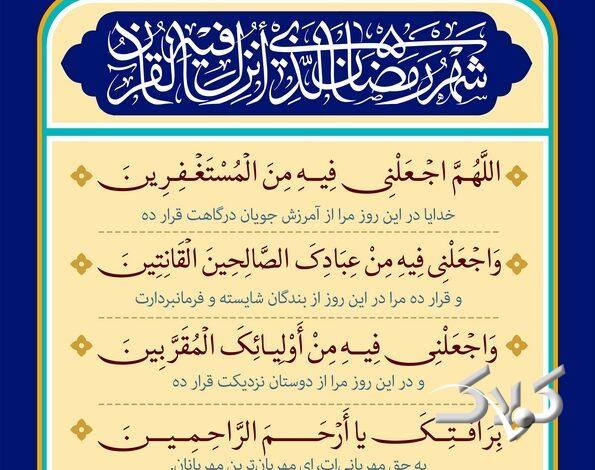 شَهْرُ رَمَضَانَ الَّذِي أُنْزِلَ فِيهِ الْقُرْآنُ
اللَّهُمَّ اجْعَلْنِی فِیهِ مِنَ الْمُسْتَغْفِرِینَ
خدایا در این روز مرا از آمرزش جویان درگاهت قرار ده
وَاجْعَلْنِی فِیهِ مِنْ عِبَادِکَ الصَّالِحِینَ الْقَانِتِینَ
و قرار ده مرا در این روز از بندگان شایسته و فرمانبردارت
وَاجْعَلْنِی فِیهِ مِنْ أَوْلِیائِکَ الْمُقَرَّبِینَ
و در این روز مرا از دوستان نزدیکت قرار ده
بِرَافَتِکَ یا أَرْحَمَ الرَّاحِمِینَ
به حق مهربانی‌ات، ای مهربان‌ترین مهربانان.